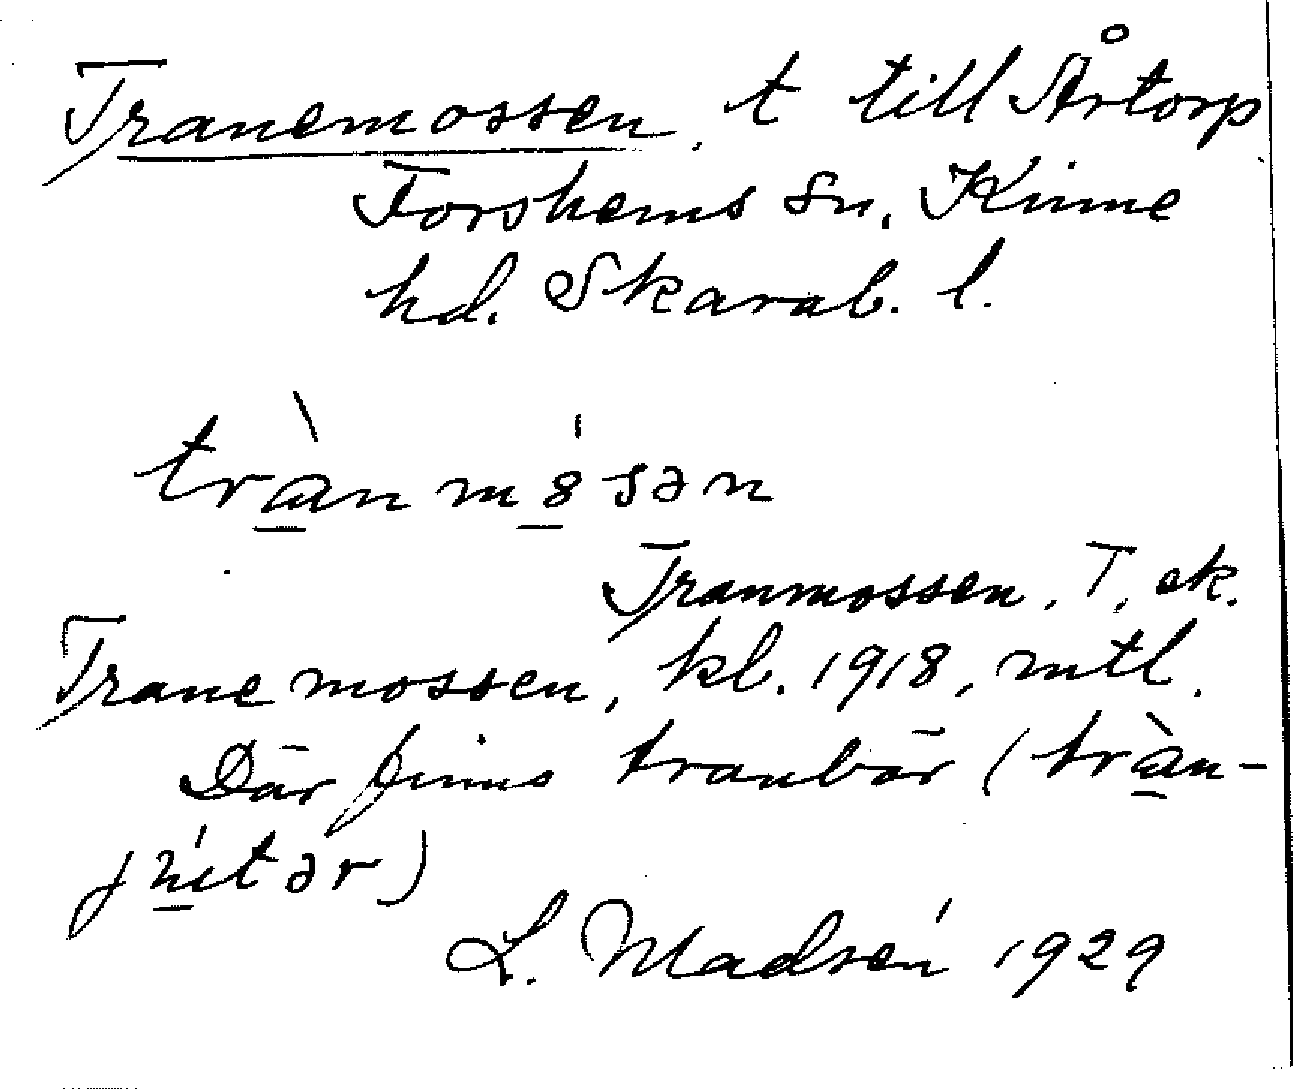 Tranemossen, t till Årtorp
Forshems sn, Kinne
hd. Skarab. l.
trànmósən
Tranmossen, T. ek.
Tranemossen, kl. 1918, mtl.
Där finns tranbär (tràn-
jútər)
L. Madsén 1929